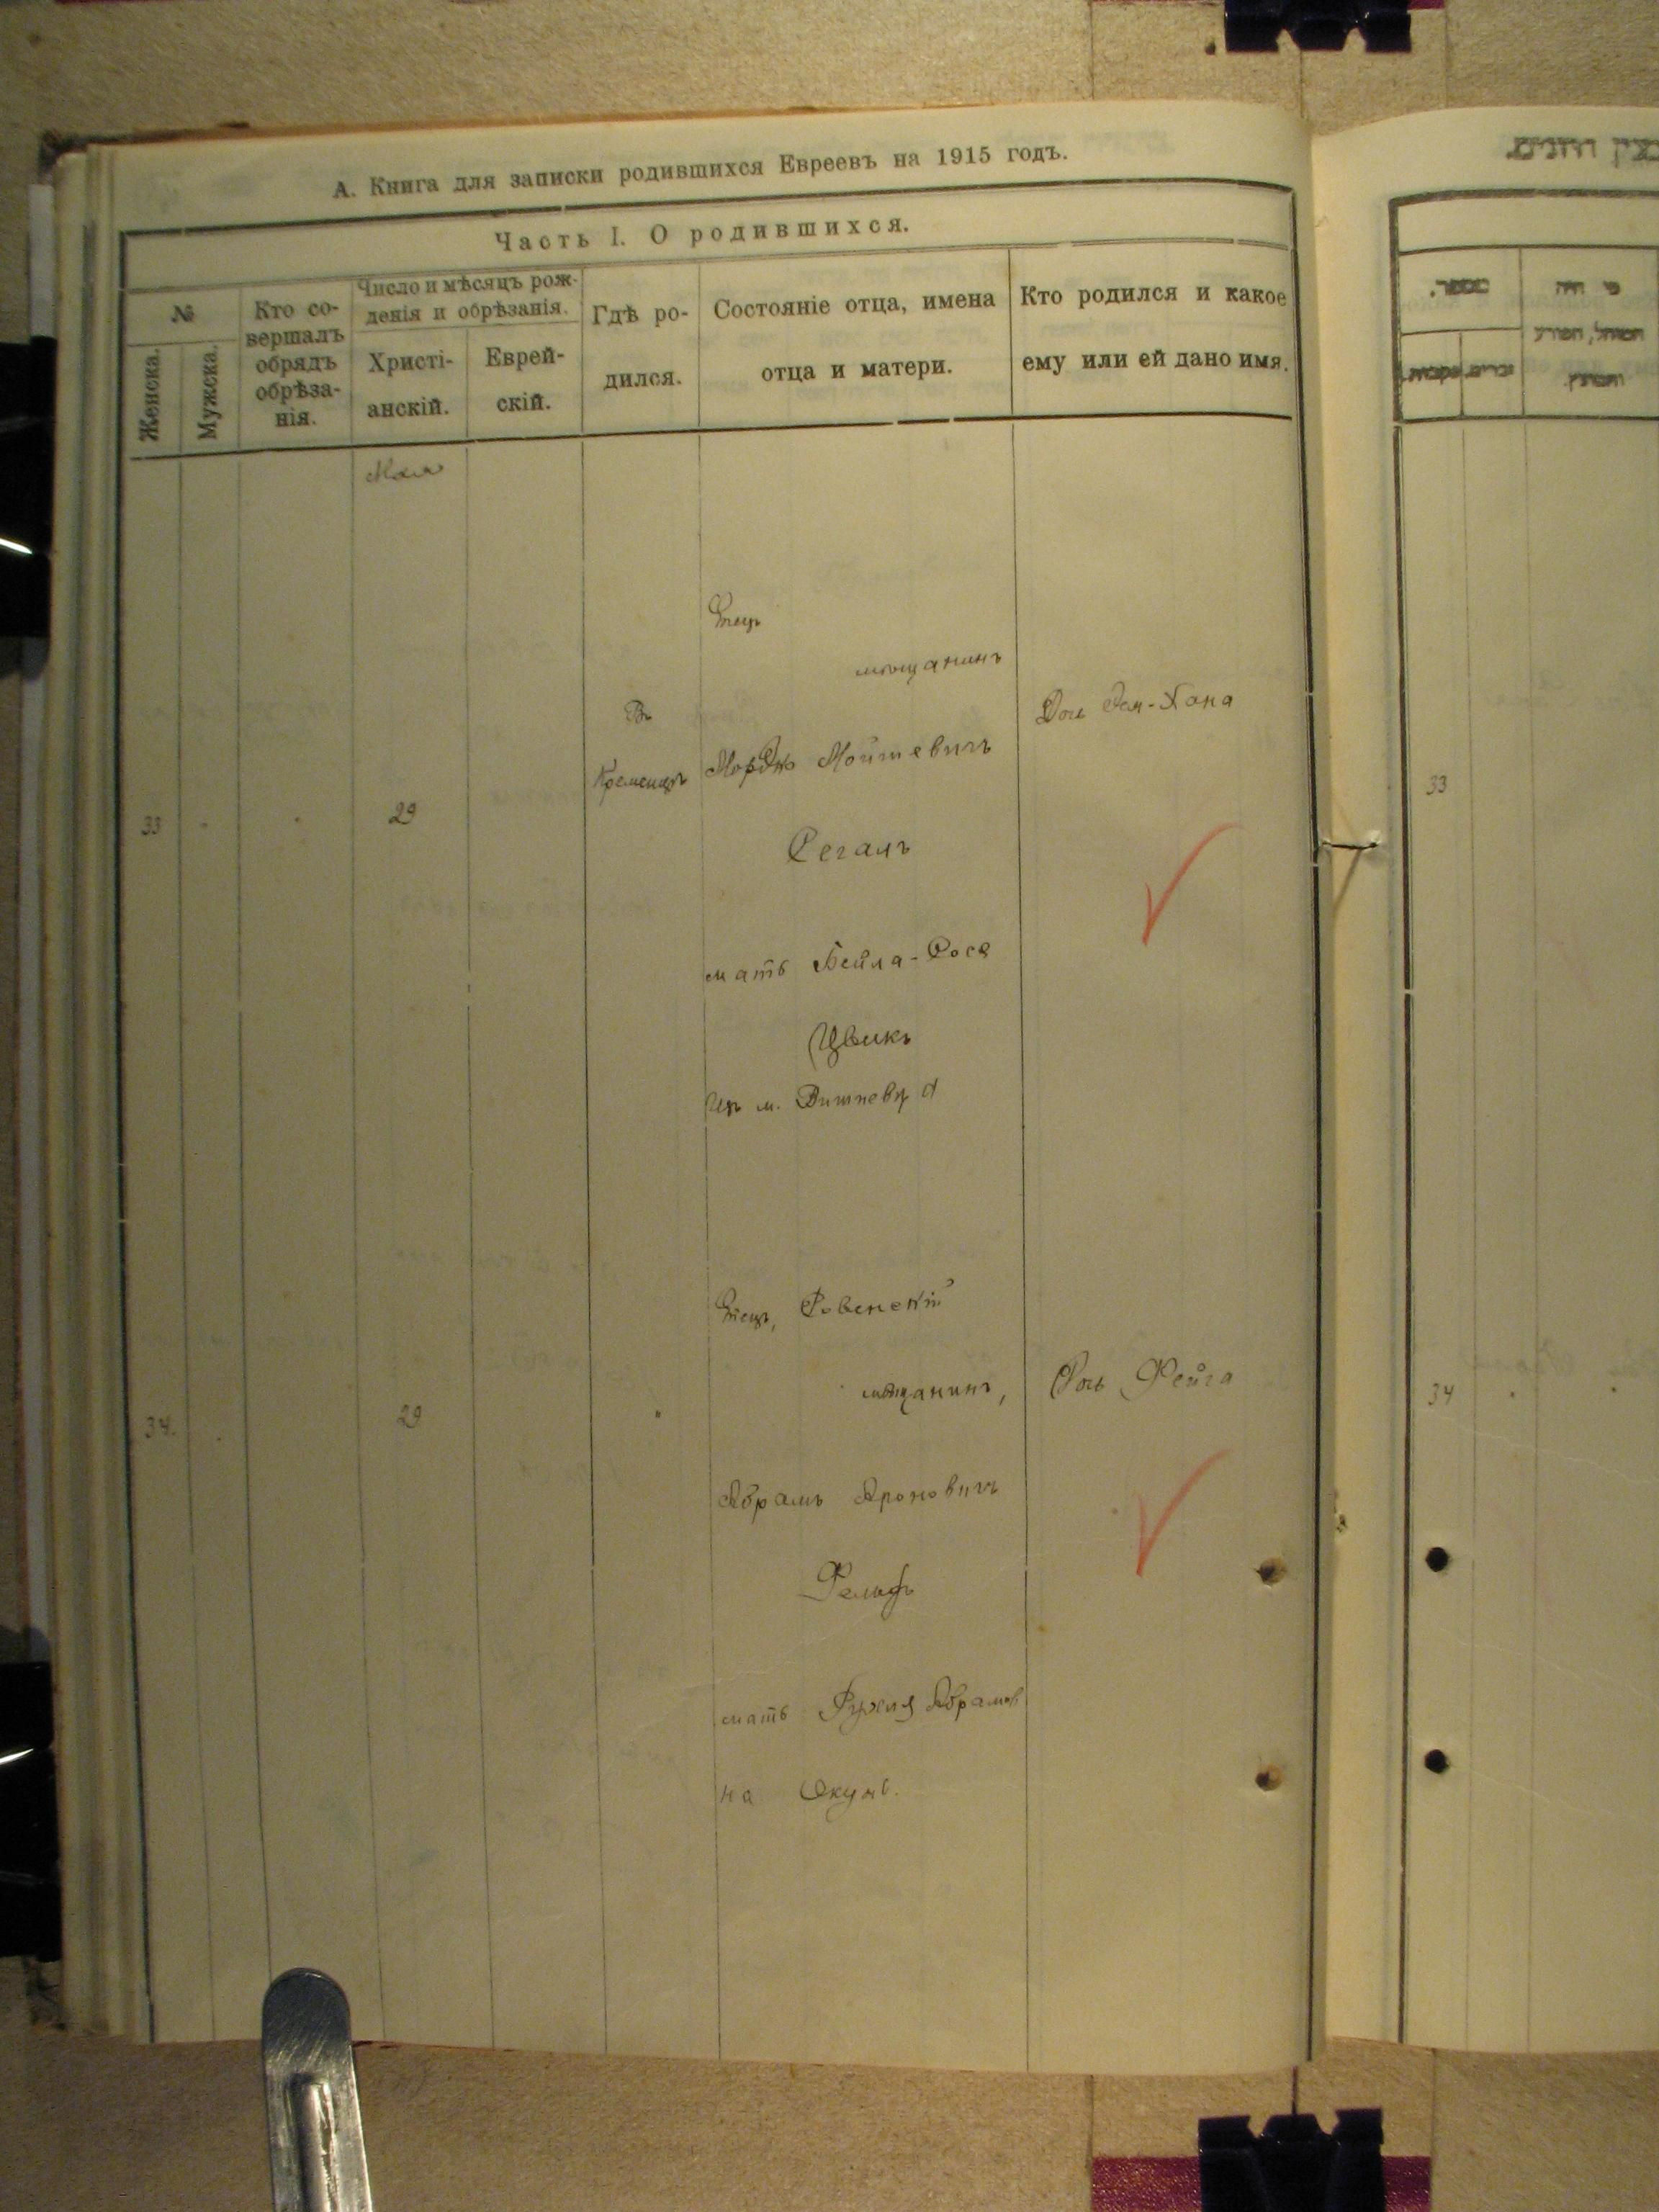 А. Книга для записки родившихся Евреевъ на 1915 годъ.
Часть I. О родившихся.
№
Женска.
Мужска.
Кто со-
вершалъ
обрядъ
обрѣза-
нія.
Число и мѣсяцъ рож-
денія и обрѣзанія.
Христі-
анскій.
Еврей-
скій.
Гдѣ ро-
дился.
Состояніе отца, имена
отца и матери.
Кто родился и какое
ему или ей дано имя.
Мая
33
29
Въ
Кременцѣ
Отецъ
мѣщанинъ
Мойшевичъ
Сегалъ
мать Бейла-Рося
Цвикъ
Изъ м. Вишневца
Дочь Эня-Хана
33
34.
29
"
Отецъ, Ровенскій
мѣщанинъ,
Абрамъ Ароновичъ
мать Рухля Абрамов
на Окунь.
Дочь Фейга
34